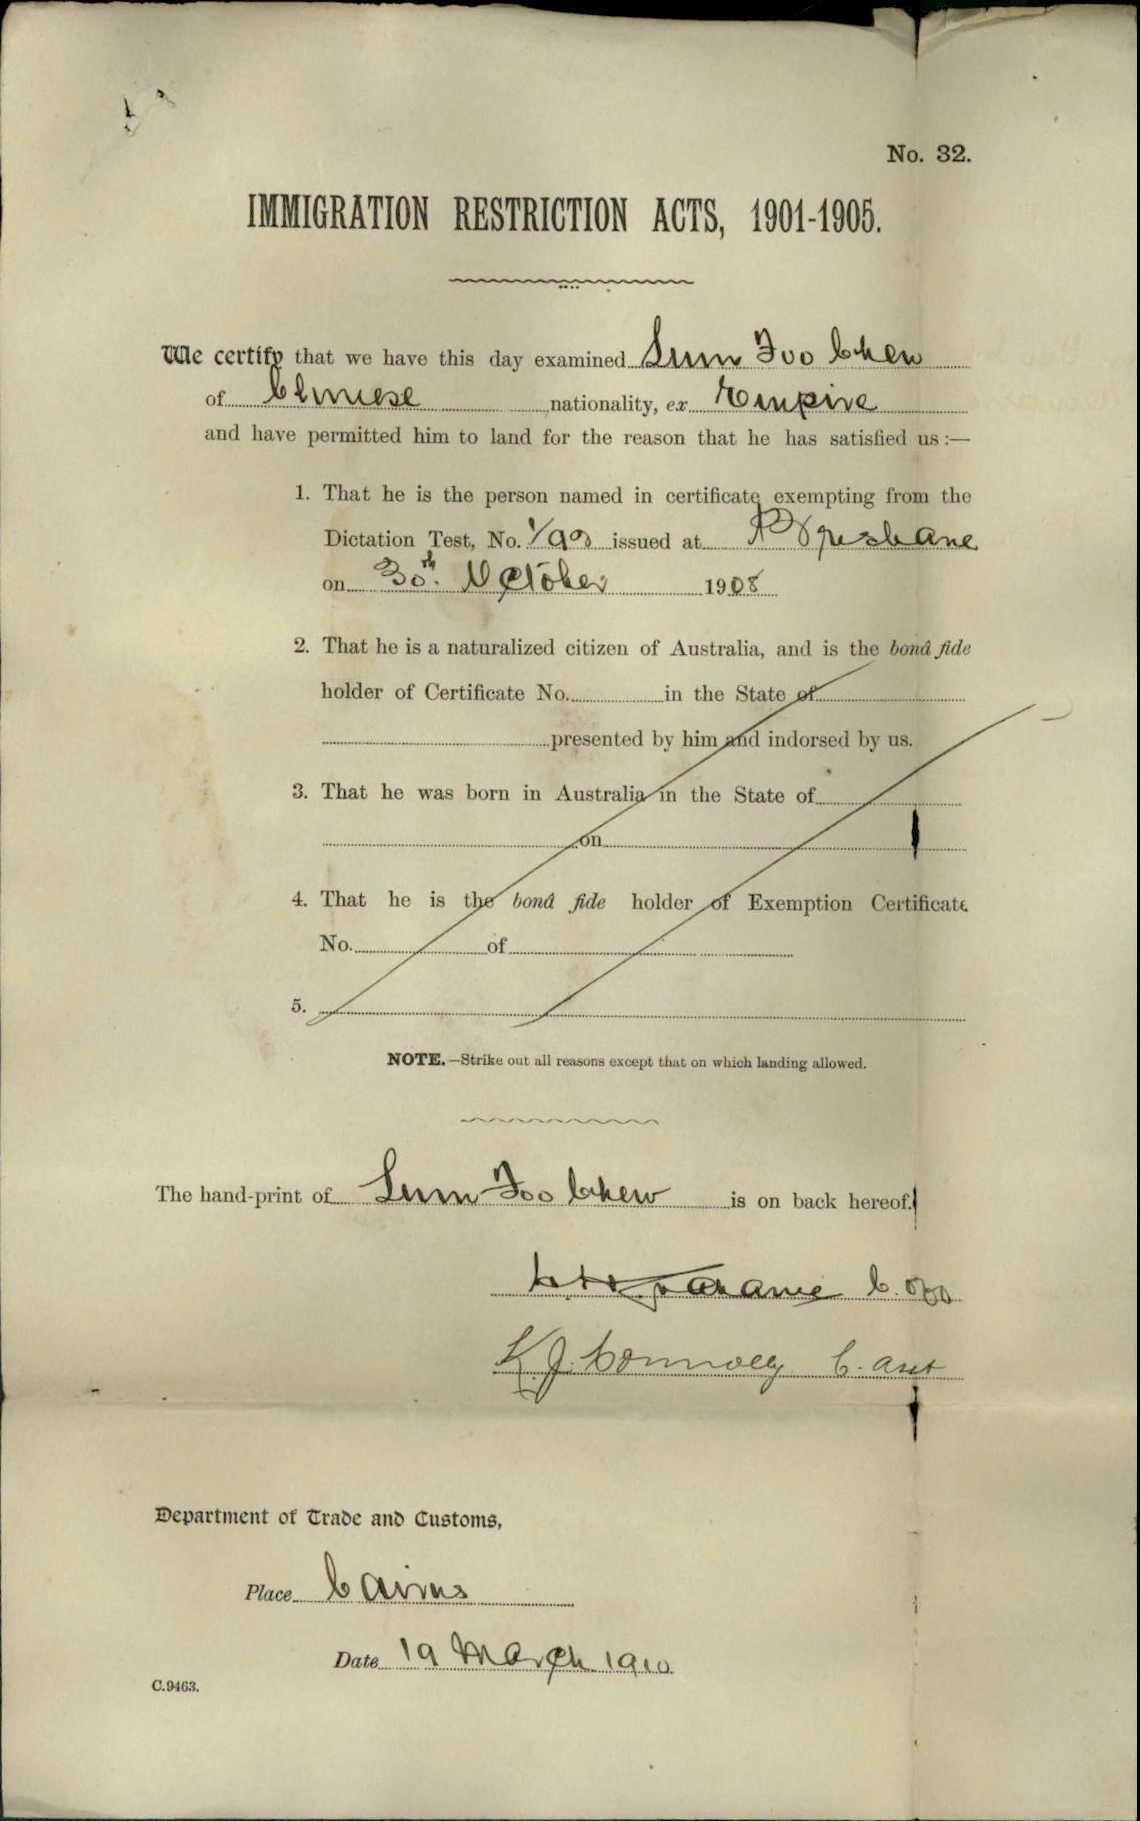 No. 32.
IMMIGRATION RESTRICTION ACTS, 1901-1905.
We certify that we have this day examined Lum Foo Chew
of Chinese nationality, ex Empire
and have permitted him to land for the reason that he has satisfied us :—
1. That he is the person named in certificate exempting from the
Dictation Test, No. issued at Brisbane
on 30th. October 1908
2. That he is a naturalized citizen of Australia, and is the bonâ fide
holder of Certificate No. in the State of
presented by him and indorsed by us.
3. That he was born in Australia in the State of
on
4. That he is the bonâ fide holder of Exemption Certificate
No. of
5.
NOTE.—Strike out all reasons except that on which landing allowed.
The hand-print of Lum Foo Chew is on back hereof.
C. Off
K. J. Connolly C. Asst
Department of Trade and Customs,
Place Cairns
Date 19 March 1910
C.9463.